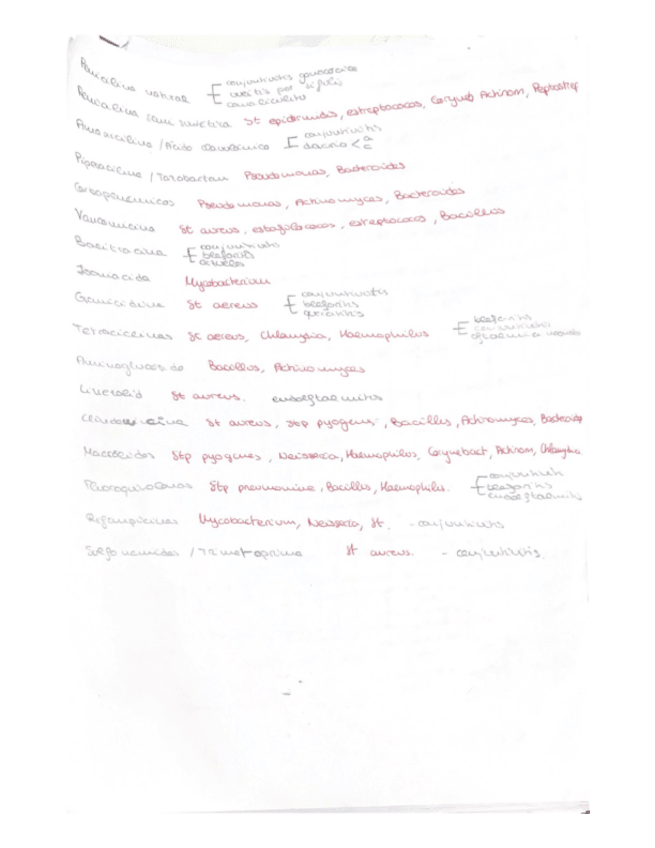 Penicilina natural [conjuntivitis gonocócica
uveitis por sífilis
canaliculitis
Penicilina semi sintética St epidermidis, estreptococos, Coryneb, Actinom, Peptostrep
Amoxicilina / Ácido clavulánico [conjuntivitis
dacrio < a
c
Piperacilina / Tazobactam Pseudomonas, Bacteroides
Carbapenémicos Pseudomonas, Actinomyces, Bacteroides
Vancomicina St aureus, estafilococos, estreptococos, Bacillus
Bacitracina [conjuntivitis
blefaritis
Isoniacida Mycobacterium
Gramicidina St aereus [conjuntivitis
blefaritis
queratitis
Tetraciclinas St aereus, Chlamydia, Haemophilus [blefaritis
conjuntivitis
oftalmia neonato
Aminoglucósido Bacillus, Actinomyces
Linezolid St aureus. endoftalmitis
Clindamicina St aureus, Stp pyogens, Bacillus, Actinomyces, Bacteroides
Macrólidos Stp pyogenes, Neisseria, Haemophilus, Corynebact, Actinom, Chlamydia
Fluoroquinolonas Stp pneumoniae, Bacillus, Haemophilus. [conjuntivitis
blefaritis
endoftalmitis
Rifampicinas Mycobacterium, Neisseria, St. - conjuntivitis
Sulfonamidas / Trimetoprima St aureus. - conjuntivitis.